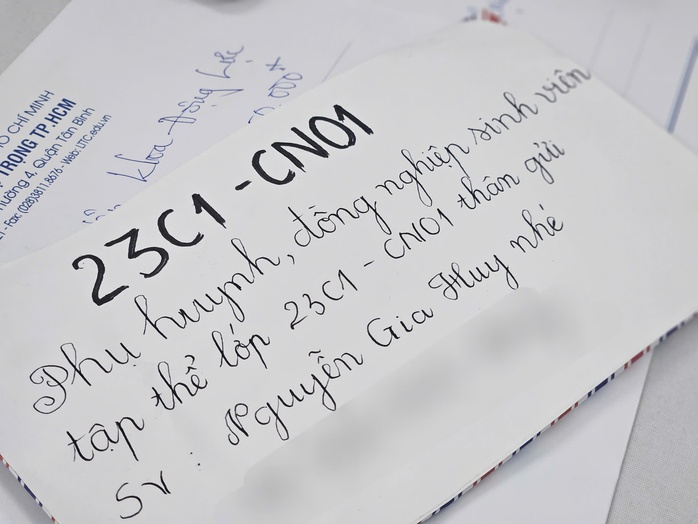 HỒ CHÍ MINH
TRỌNG TP.HCM
Phường 4, Quận Tân Bình
Fax: (028)3811.8676 - Web: IJTC.edu.vn
Khoa Động lực
23C1 - CN01
Phụ huynh, đồng nghiệp sinh viên
tập thể lớp 23C1 - CN01 thân gửi
SV : Nguyễn Gia Huy nhé